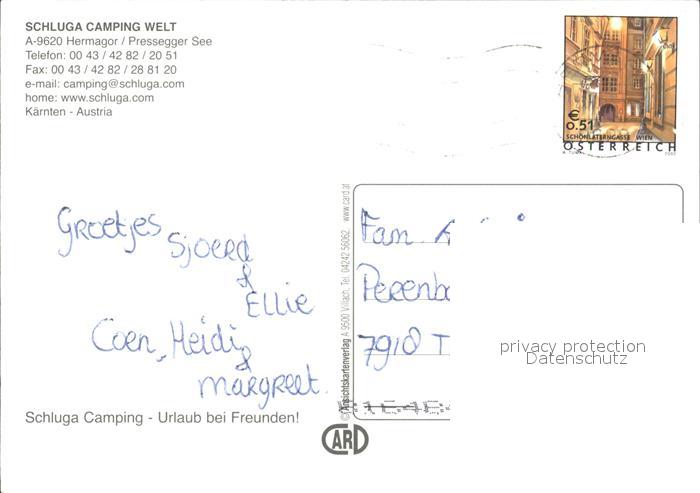 SCHLUGA CAMPING WELT
A-9620 Hermagor / Pressegger See
Telefon: 00 43 / 42 82 / 20 51
Fax: 00 43 / 42 82 / 28 81 20
e-mail: camping@schluga.com
home: www.schluga.com
Kärnten - Austria
€
0.51
SCHÖNLATERNGASSE WIEN
ÖSTERREICH
Groetjes
Sjoerd
&
Ellie
Coen, Heidi
&
Margreet.
Schluga Camping - Urlaub bei Freunden!
© Ansichtskartenverlag A 9500 Villach, Tel. 04242 56062 www.card.at
CARD
Fam
Perenb
7918 T
privacy protection
Datenschutz